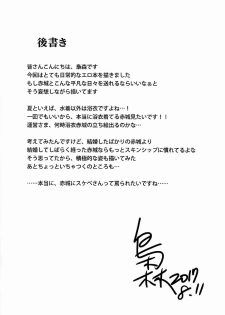 後書き
皆さんこんにちは、梟森です
今回はとても日常的なエロ本を描きました
もし赤城とこんな平凡な日々を送れるならいいなぁと
そう妄想しながら描いてます
夏といえば、水着以外は浴衣ですよね…！
一回でもいいから、本当に浴衣着てる赤城見たいです！
運営さま、何時浴衣赤城の立ち絵出るのかな…
考えてみたんですけど、結婚したばかりの赤城より
結婚してしばらく経った赤城ならもっとスキンシップに慣れてるよな
そう思ってたから、積極的な姿も描いてみた
あとちょっといちゃつくのところも…
……本当に、赤城にスケベさんって罵られたいですね…
梟森 2017
8.11